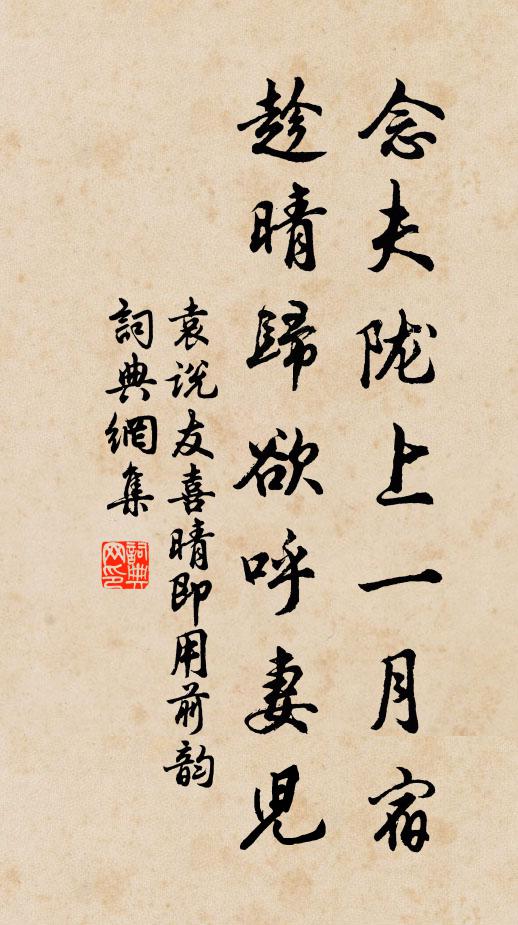 念夫陇上一月宿
趁晴歸欲呼妻児
袁说友喜晴即用前韵
詞典網集
詞典網印